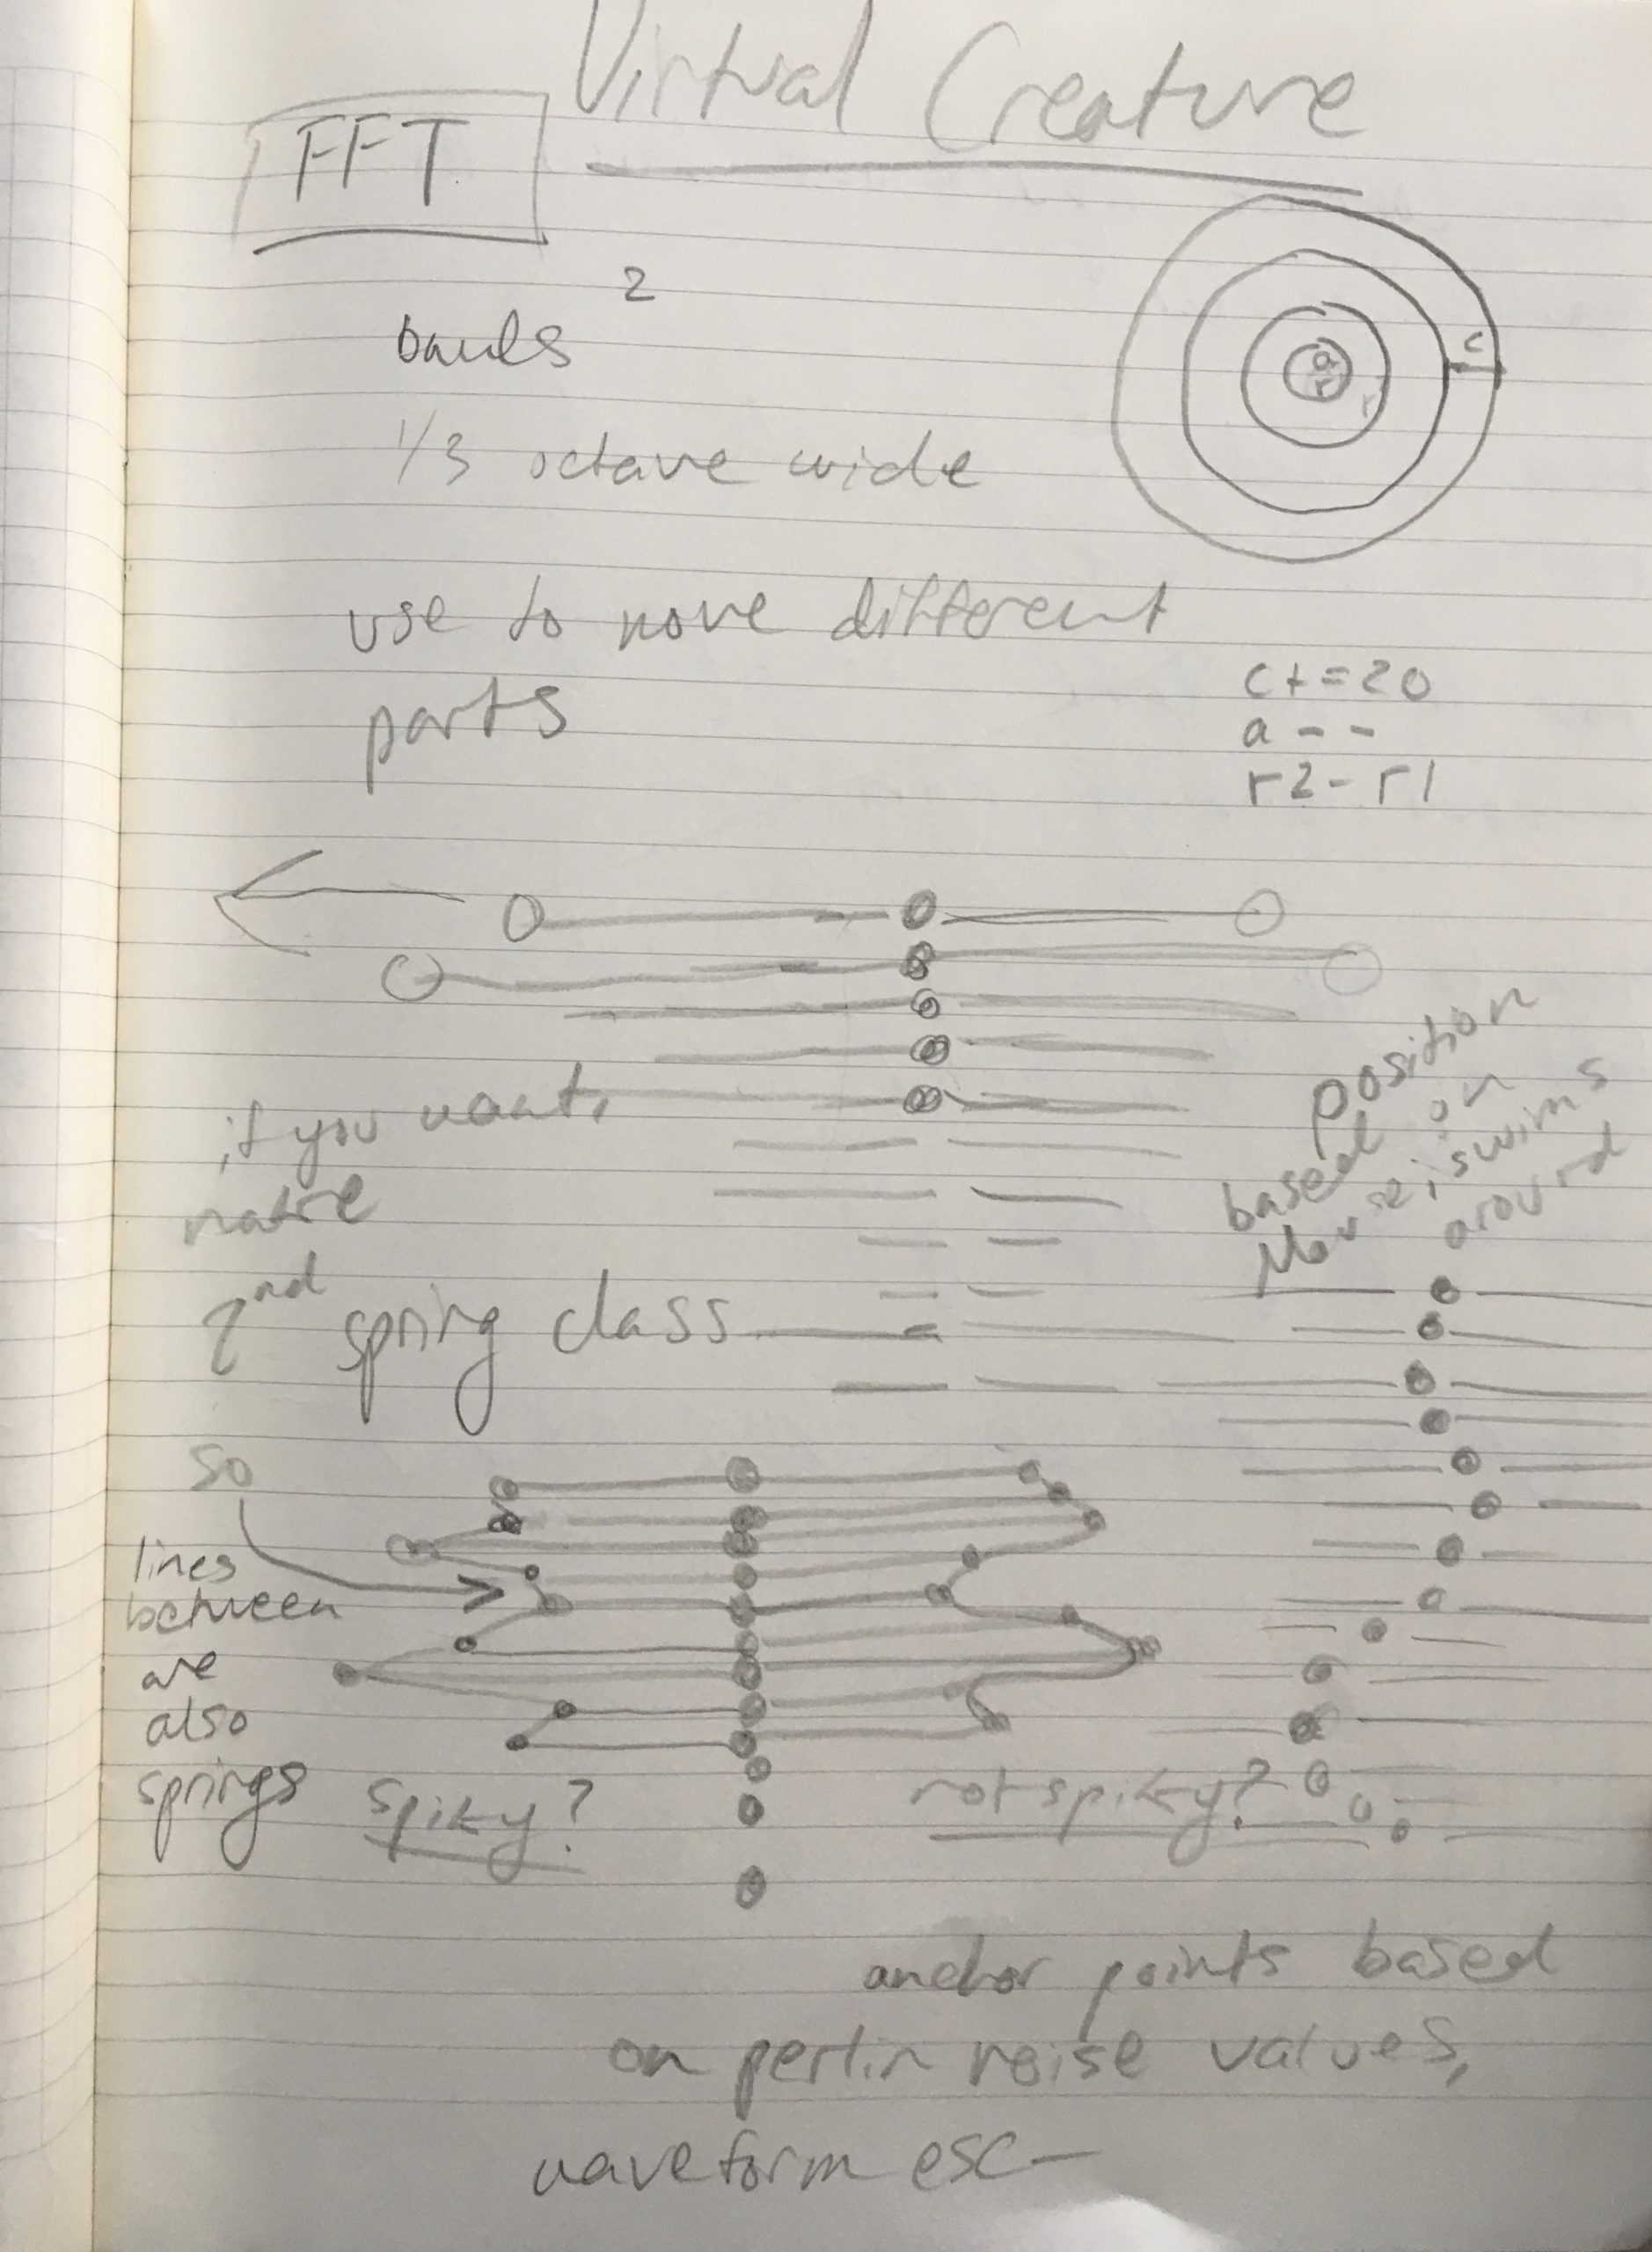 Virtual Creature
FFT
2
bands
1/3 octave wide
a
r
r
c
use to move different
parts
c+=20
a--
r2-r1
if you want,
make
2nd spring class
position
based on
Mouse; swims
around
so
lines
between
are
also
springs
spiky?
not spiky?
anchor points based
on perlin noise values,
waveform esc—